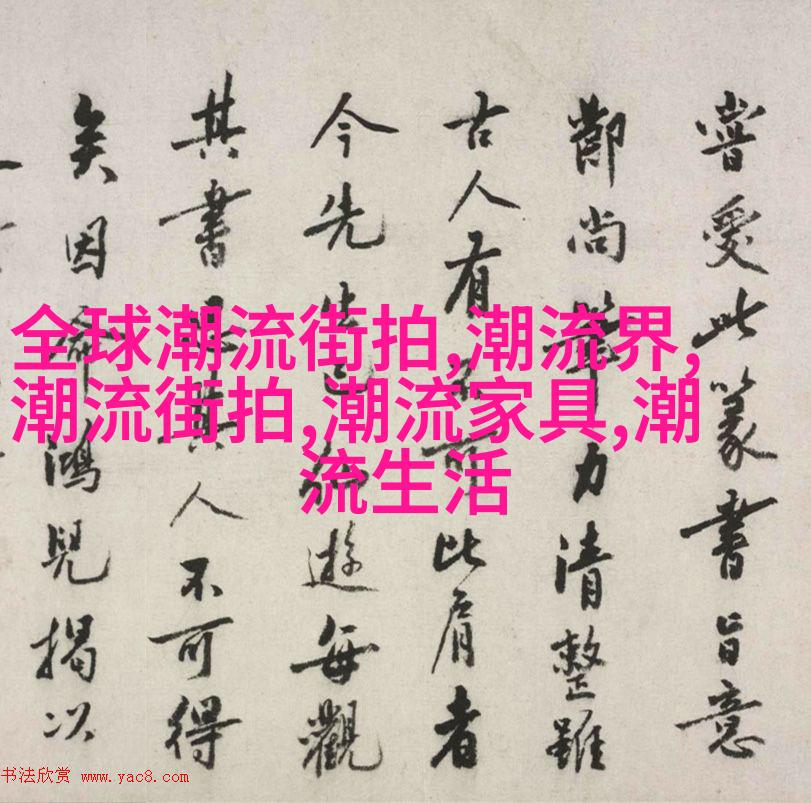 全球潮流街拍,潮流界,
潮流街拍,潮流家具,潮
流生活
嘗愛此篆書旨意
尚筆力清整雖
古人有可比肩者
今先生已遊每觀
其書其人不可得
矣因鴻兒揭以
书法欣赏 www.yac8.com